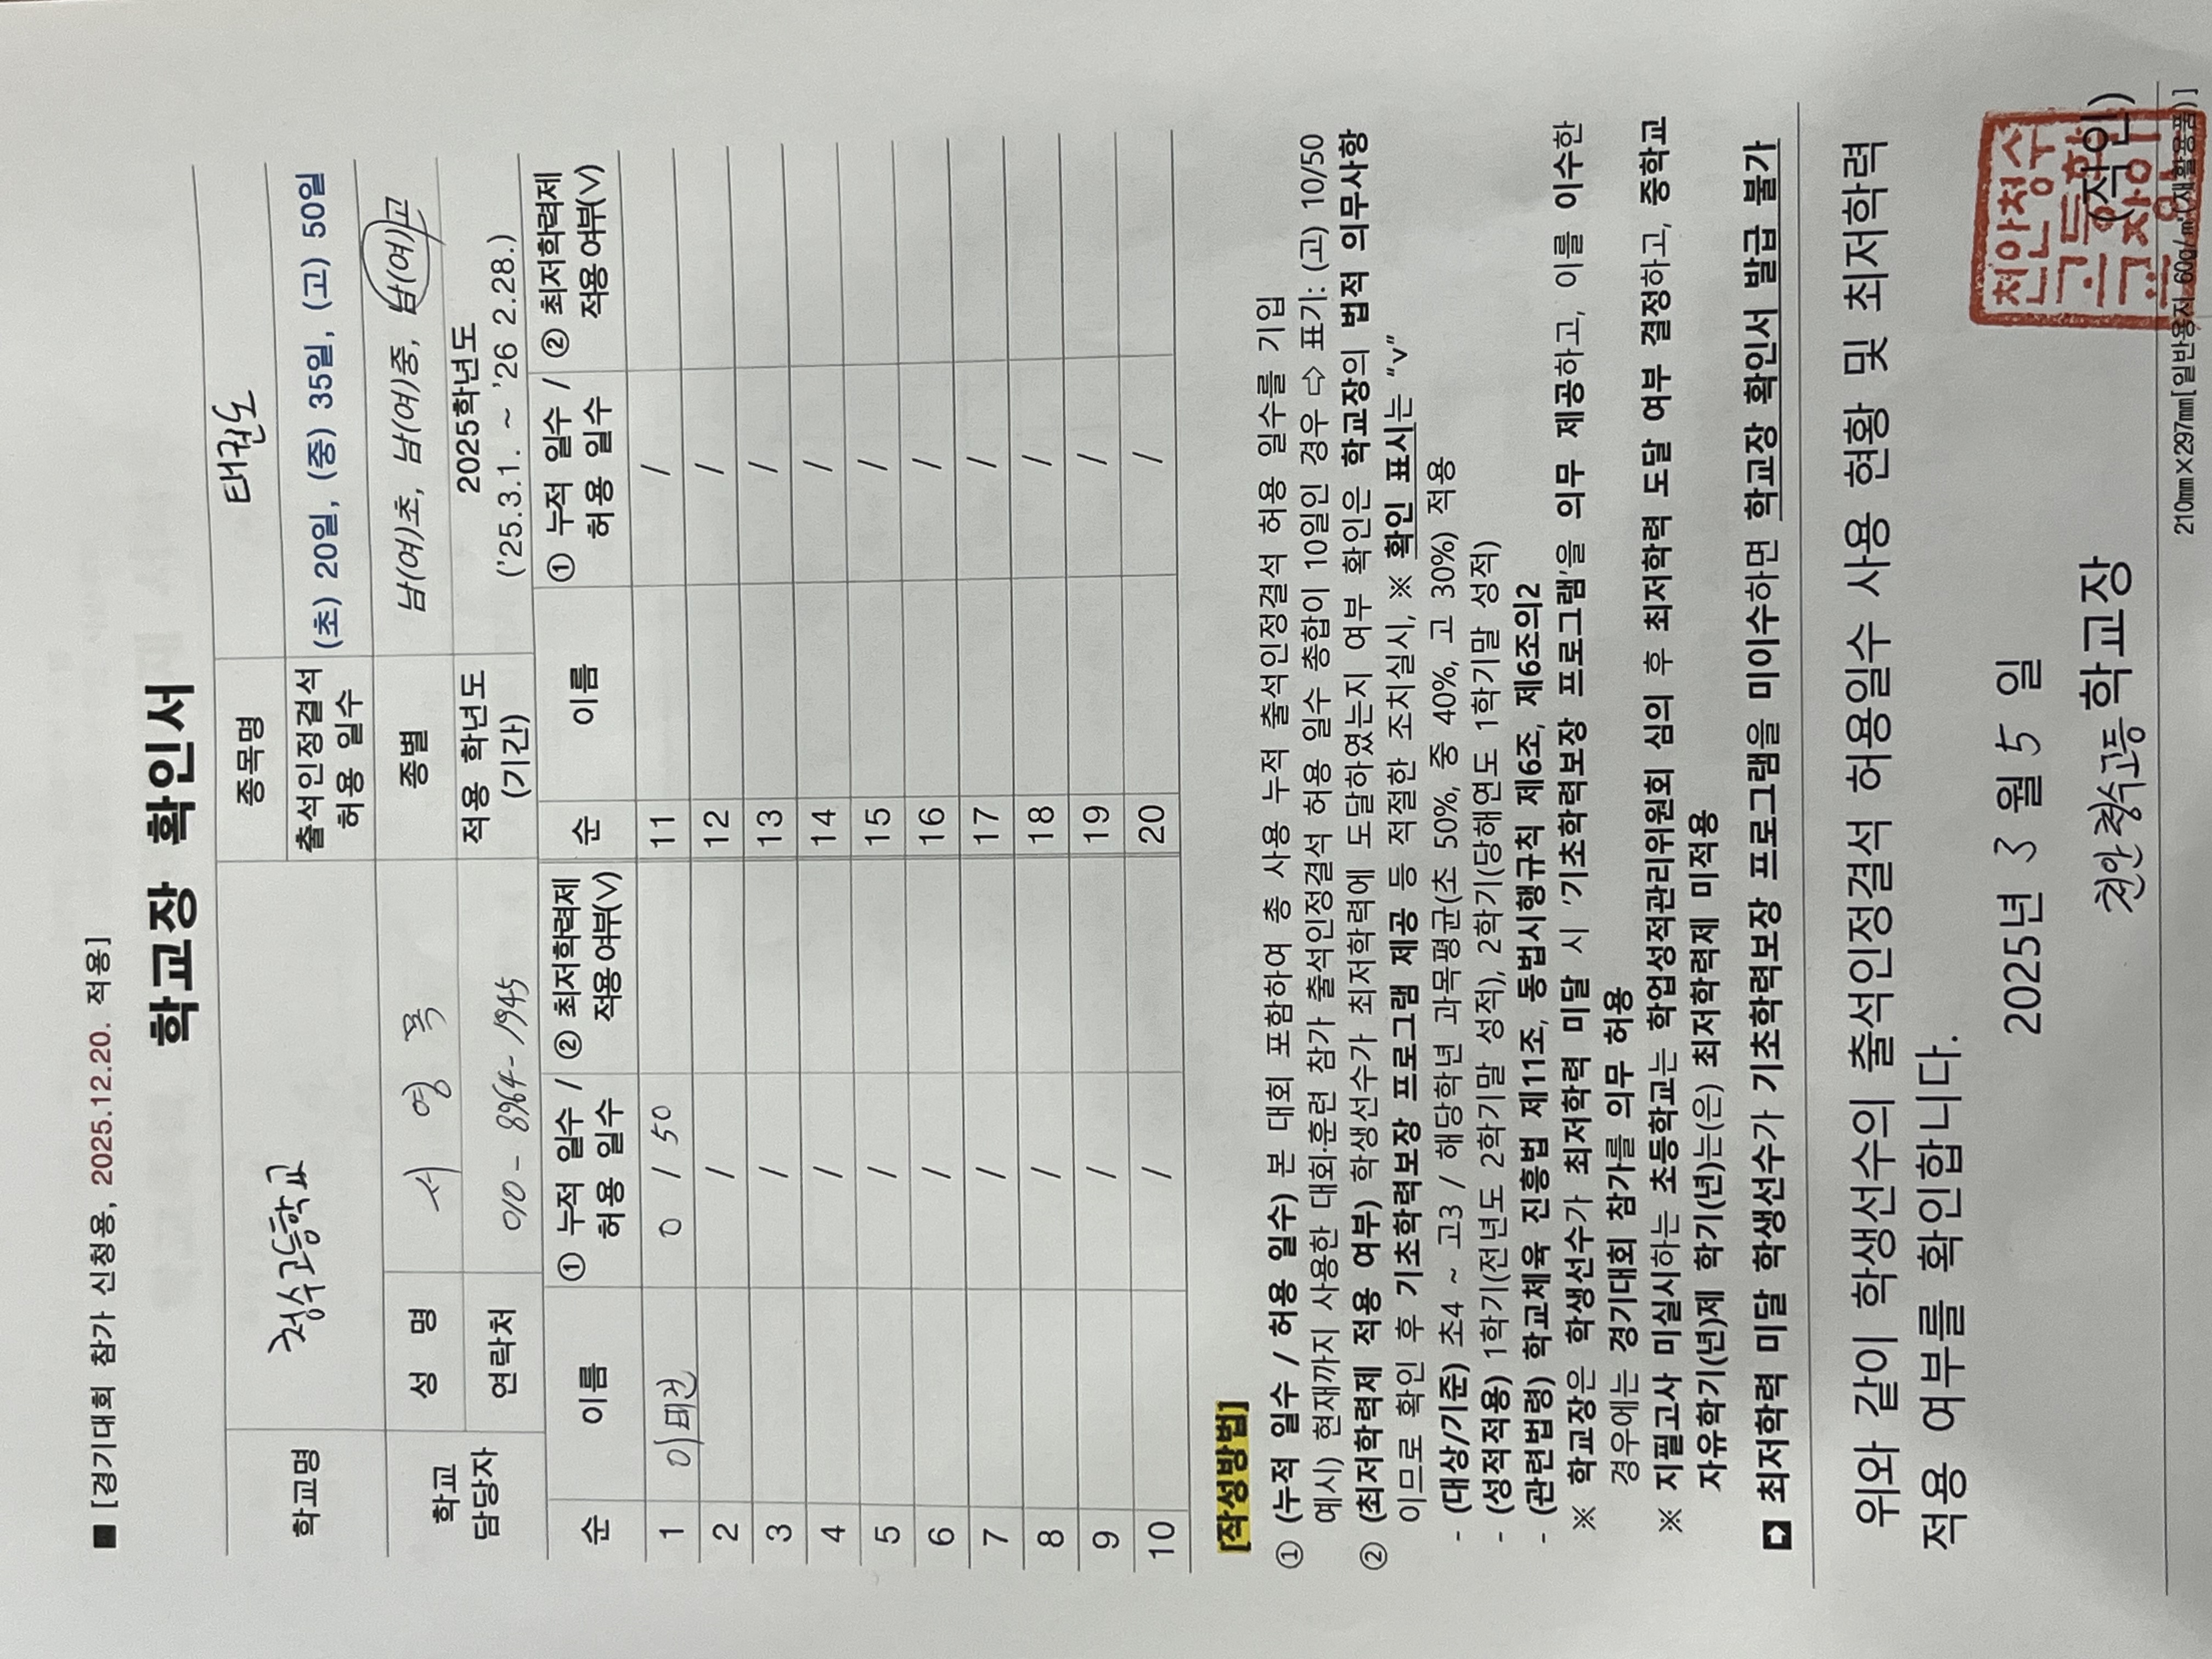 ■ [경기대회 참가 신청용, 2025.12.20. 적용]
학교장 확인서
학교명 청수고등학교 종목명 태권도
출석인정결석 허용 일수 (초) 20일, (중) 35일, (고) 50일
학교 담당자 성 명 서 영 종별 남(여)초, 남(여)중, 남(여)고
연락처 010-8964-1945 적용 학년도 (기간) 2025학년도 ('25.3.1. ~ '26 2.28.)
순 이름 ① 누적 일수 / 허용 일수 ② 최저학력제 적용여부(V) 순 이름 ① 누적 일수 / 허용 일수 ② 최저학력제 적용여부(V)
1 이태건 0 / 50 11 /
2 / 12 /
3 / 13 /
4 / 14 /
5 / 15 /
6 / 16 /
7 / 17 /
8 / 18 /
9 / 19 /
10 / 20 /
[작성방법]
① (누적 일수 / 허용 일수) 본 대회 포함하여 총 사용 누적 출석인정결석 허용 일수를 기입
예시) 현재까지 사용한 대회·훈련 참가 출석인정결석 허용 일수 총합이 10일인 경우 ⇨ 표기: (고) 10/50
② (최저학력제 적용 여부) 학생선수가 최저학력에 도달하였는지 여부 확인은 학교장의 법적 의무사항
이므로 확인 후 기초학력보장 프로그램 제공 등 적절한 조치실시, ※ 확인 표시는 “v”
- (대상/기준) 초4 ~ 고3 / 해당학년 과목평균(초 50%, 중 40%, 고 30%) 적용
- (성적적용) 1학기(전년도 2학기말 성적), 2학기(당해연도 1학기말 성적)
- (관련법령) 학교체육 진흥법 제11조, 동법시행규칙 제6조, 제6조의2
※ 학교장은 학생선수가 최저학력 미달 시 '기초학력보장 프로그램'을 의무 제공하고, 이를 이수한
경우에는 경기대회 참가를 의무 허용
※ 지필고사 미실시하는 초등학교는 학업성적관리위원회 심의 후 최저학력 도달 여부 결정하고, 중학교
자유학기(년)제 학기(년)는(은) 최저학력제 미적용
➡ 최저학력 미달 학생선수가 기초학력보장 프로그램을 미이수하면 학교장 확인서 발급 불가
위와 같이 학생선수의 출석인정결석 허용일수 사용 현황 및 최저학력
적용 여부를 확인합니다.
2025년 3 월 5 일
천안청수고등 학교장 (직인)
천안청수
고등학
교장인
210mm×297mm[일반용지 60g/㎡(재활용품)]